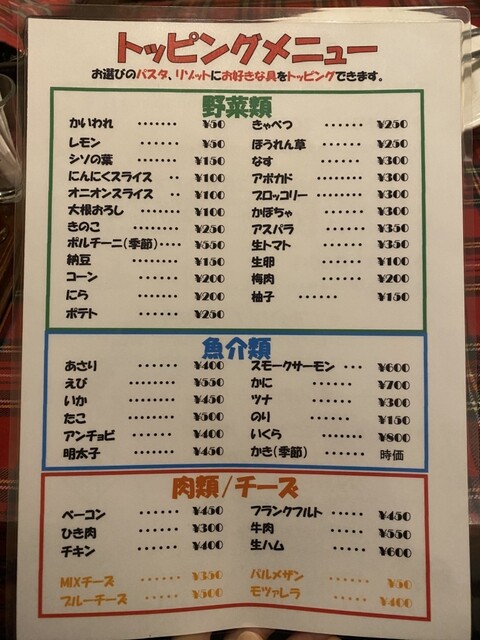 トッピングメニュー
お選びのパスタ、リゾットにお好きな具をトッピングできます。
野菜類
かいわれ ・・・・・・・ ¥50
レモン ・・・・・・ ¥50
シソの葉 ・・・・・・ ¥150
にんにくスライス ・・ ¥100
オニオンスライス ・・ ¥100
大根おろし ・・・・・・・ ¥100
きのこ ・・・・・・・・ ¥250
ポルチーニ(季節)・・・・ ¥550
納豆 ・・・・・・・・ ¥150
コーン ・・・・・・ ¥200
にら ・・・・・・・ ¥200
ポテト ・・・・・・ ¥250
きゃべつ ・・・・・・ ¥250
ほうれん草 ・・・・・・ ¥250
なす ・・・・・・ ¥300
アボカド ・・・・・・・・ ¥300
ブロッコリー ・・・・・・・・ ¥300
かぼちゃ ・・・・・・・ ¥300
アスパラ ・・・・・・・ ¥350
生トマト ・・・・・・ ¥350
生卵 ・・・・・・ ¥100
梅肉 ・・・・・・・ ¥200
柚子 ・・・・・・ ¥150
魚介類
あさり ・・・・・・ ¥400
えび ・・・・・・ ¥550
いか ・・・・・・ ¥450
たこ ・・・・・・ ¥500
アンチョビ ・・・・・・ ¥400
明太子 ・・・・・・・ ¥450
スモークサーモン ・・・ ¥600
かに ・・・・・・ ¥700
ツナ ・・・・・・ ¥300
のり ・・・・・・ ¥150
いくら ・・・・・・・ ¥800
かき(季節) ・・・・・・ 時価
肉類/チーズ
ベーコン ・・・・・・ ¥450
ひき肉 ・・・・・・ ¥300
チキン ・・・・・・ ¥400
フランクフルト ・・・・・ ¥450
牛肉 ・・・・・・ ¥550
生ハム ・・・・・・ ¥600
MIXチーズ ・・・・・・ ¥350
ブルーチーズ ・・・・・・ ¥500
パルメザン ・・・・・・ ¥50
モツァレラ ・・・・・・ ¥400